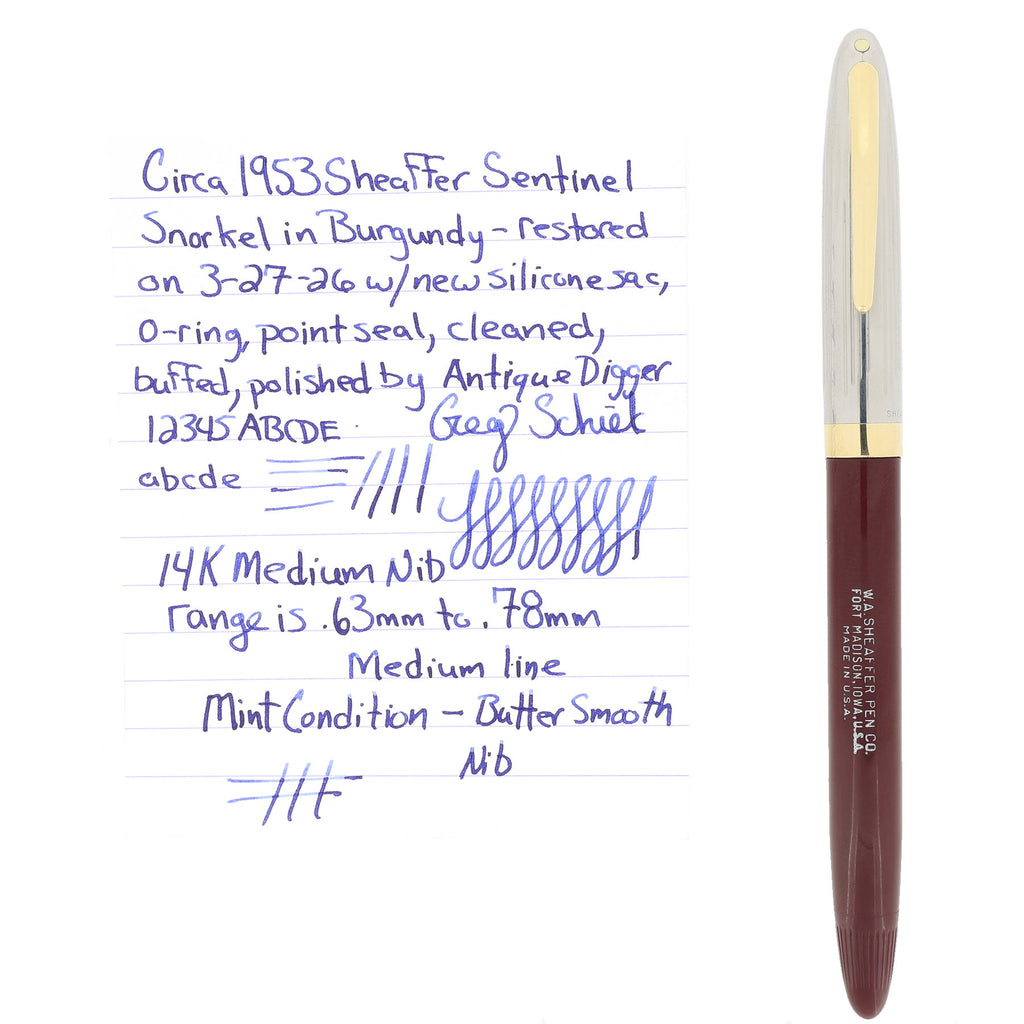 Circa 1953 Sheaffer Sentinel
Snorkel in Burgundy - restored
on 3-27-26 w/ new silicone sac,
O-ring, point seal, cleaned,
buffed, polished by Antique Digger
12345 ABCDE
Greg
abcde
14K Medium Nib
range is .63mm to .78mm
Medium line
Mint Condition - Butter Smooth
Nib
W.A. SHEAFFER PEN CO.
FORT MADISON, IOWA, U.S.A.
MADE IN U.S.A.